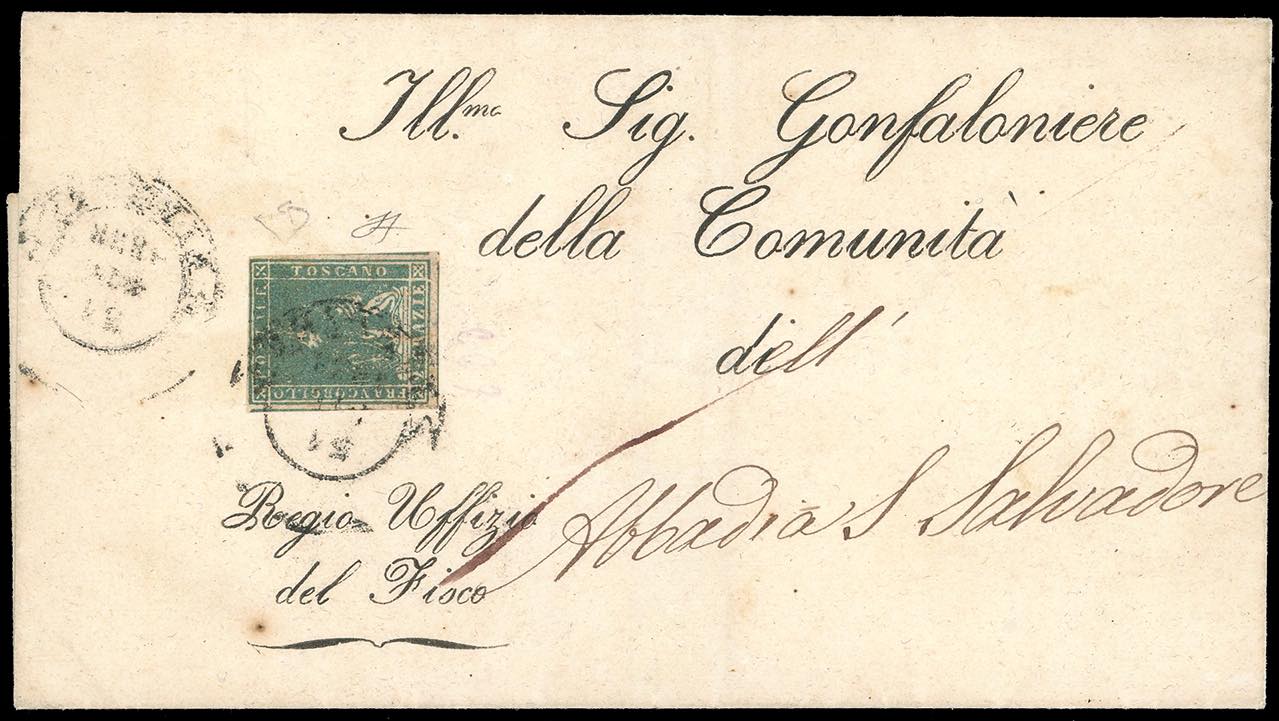 Ill.mo Sig. Gonfaloniere
della Comunità
dell'
Abbadia S Salvadore
TOSCANO
FRANCOBOLLO
GRAZIE
Regio Uffizio
del Fisco